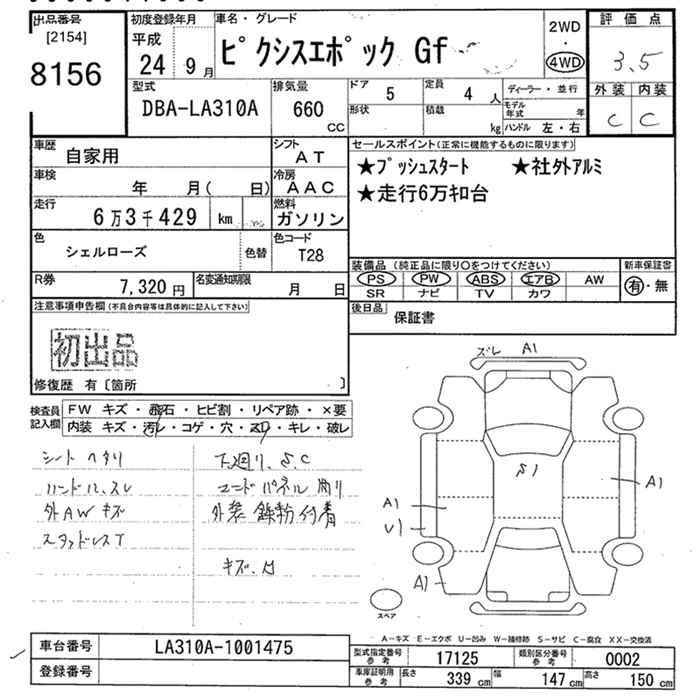 出品番号
[2154]
8156
初度登録年月
平成
24 9月
車名・グレード
ピクシスエポック Gf
2WD
・
4WD
評価点
3.5
外装 内装
C C
型式
DBA-LA310A
排気量
660
CC
ドア
5
形状
定員
4 人
積載
kg
ディーラー・並行
モデル年式 年
ハンドル 左・右
車歴
自家用
シフト
AT
車検
年 月( 日)
冷房
AAC
走行
6万3千429 km
燃料
ガソリン
色
シェルローズ
色替
色コード
T28
R券
7,320円
名変通知期限
月 日
セールスポイント(正常に機能するものに限ります)
★プッシュスタート ★社外アルミ
★走行6万キロ台
装備品 (純正品に限り〇をつけてください)
PS PW ABS エアB AW
SR ナビ TV カワ
新車保証書
有・無
後日品
保証書
注意事項申告欄(不具合内容等は具体的に記入して下さい)
初出品
修復歴 有〔箇所 〕
検査員
記入欄
FW キズ・飛石・ヒビ割・リペア跡・×要
内装 キズ・汚レ・コゲ・穴・スリ・キレ・破レ
シートヘタリ
ハンドル、スレ
外AWキズ
スタッドレスT
下廻り、S、C
エンドパネル周り
外装 鉄粉付着
キズ、凹
ズレ A1
S1
A1
A1
U1
A1
スペア
A-キズ E-エクボ U-凹み W-補修跡 S-サビ C-腐食 XX-交換済
車台番号
LA310A-1001475
登録番号
型式指定番号
参考
17125
類別区分番号
参考
0002
車庫証明用
参考
長さ 339 cm
幅 147 cm
高さ 150 cm